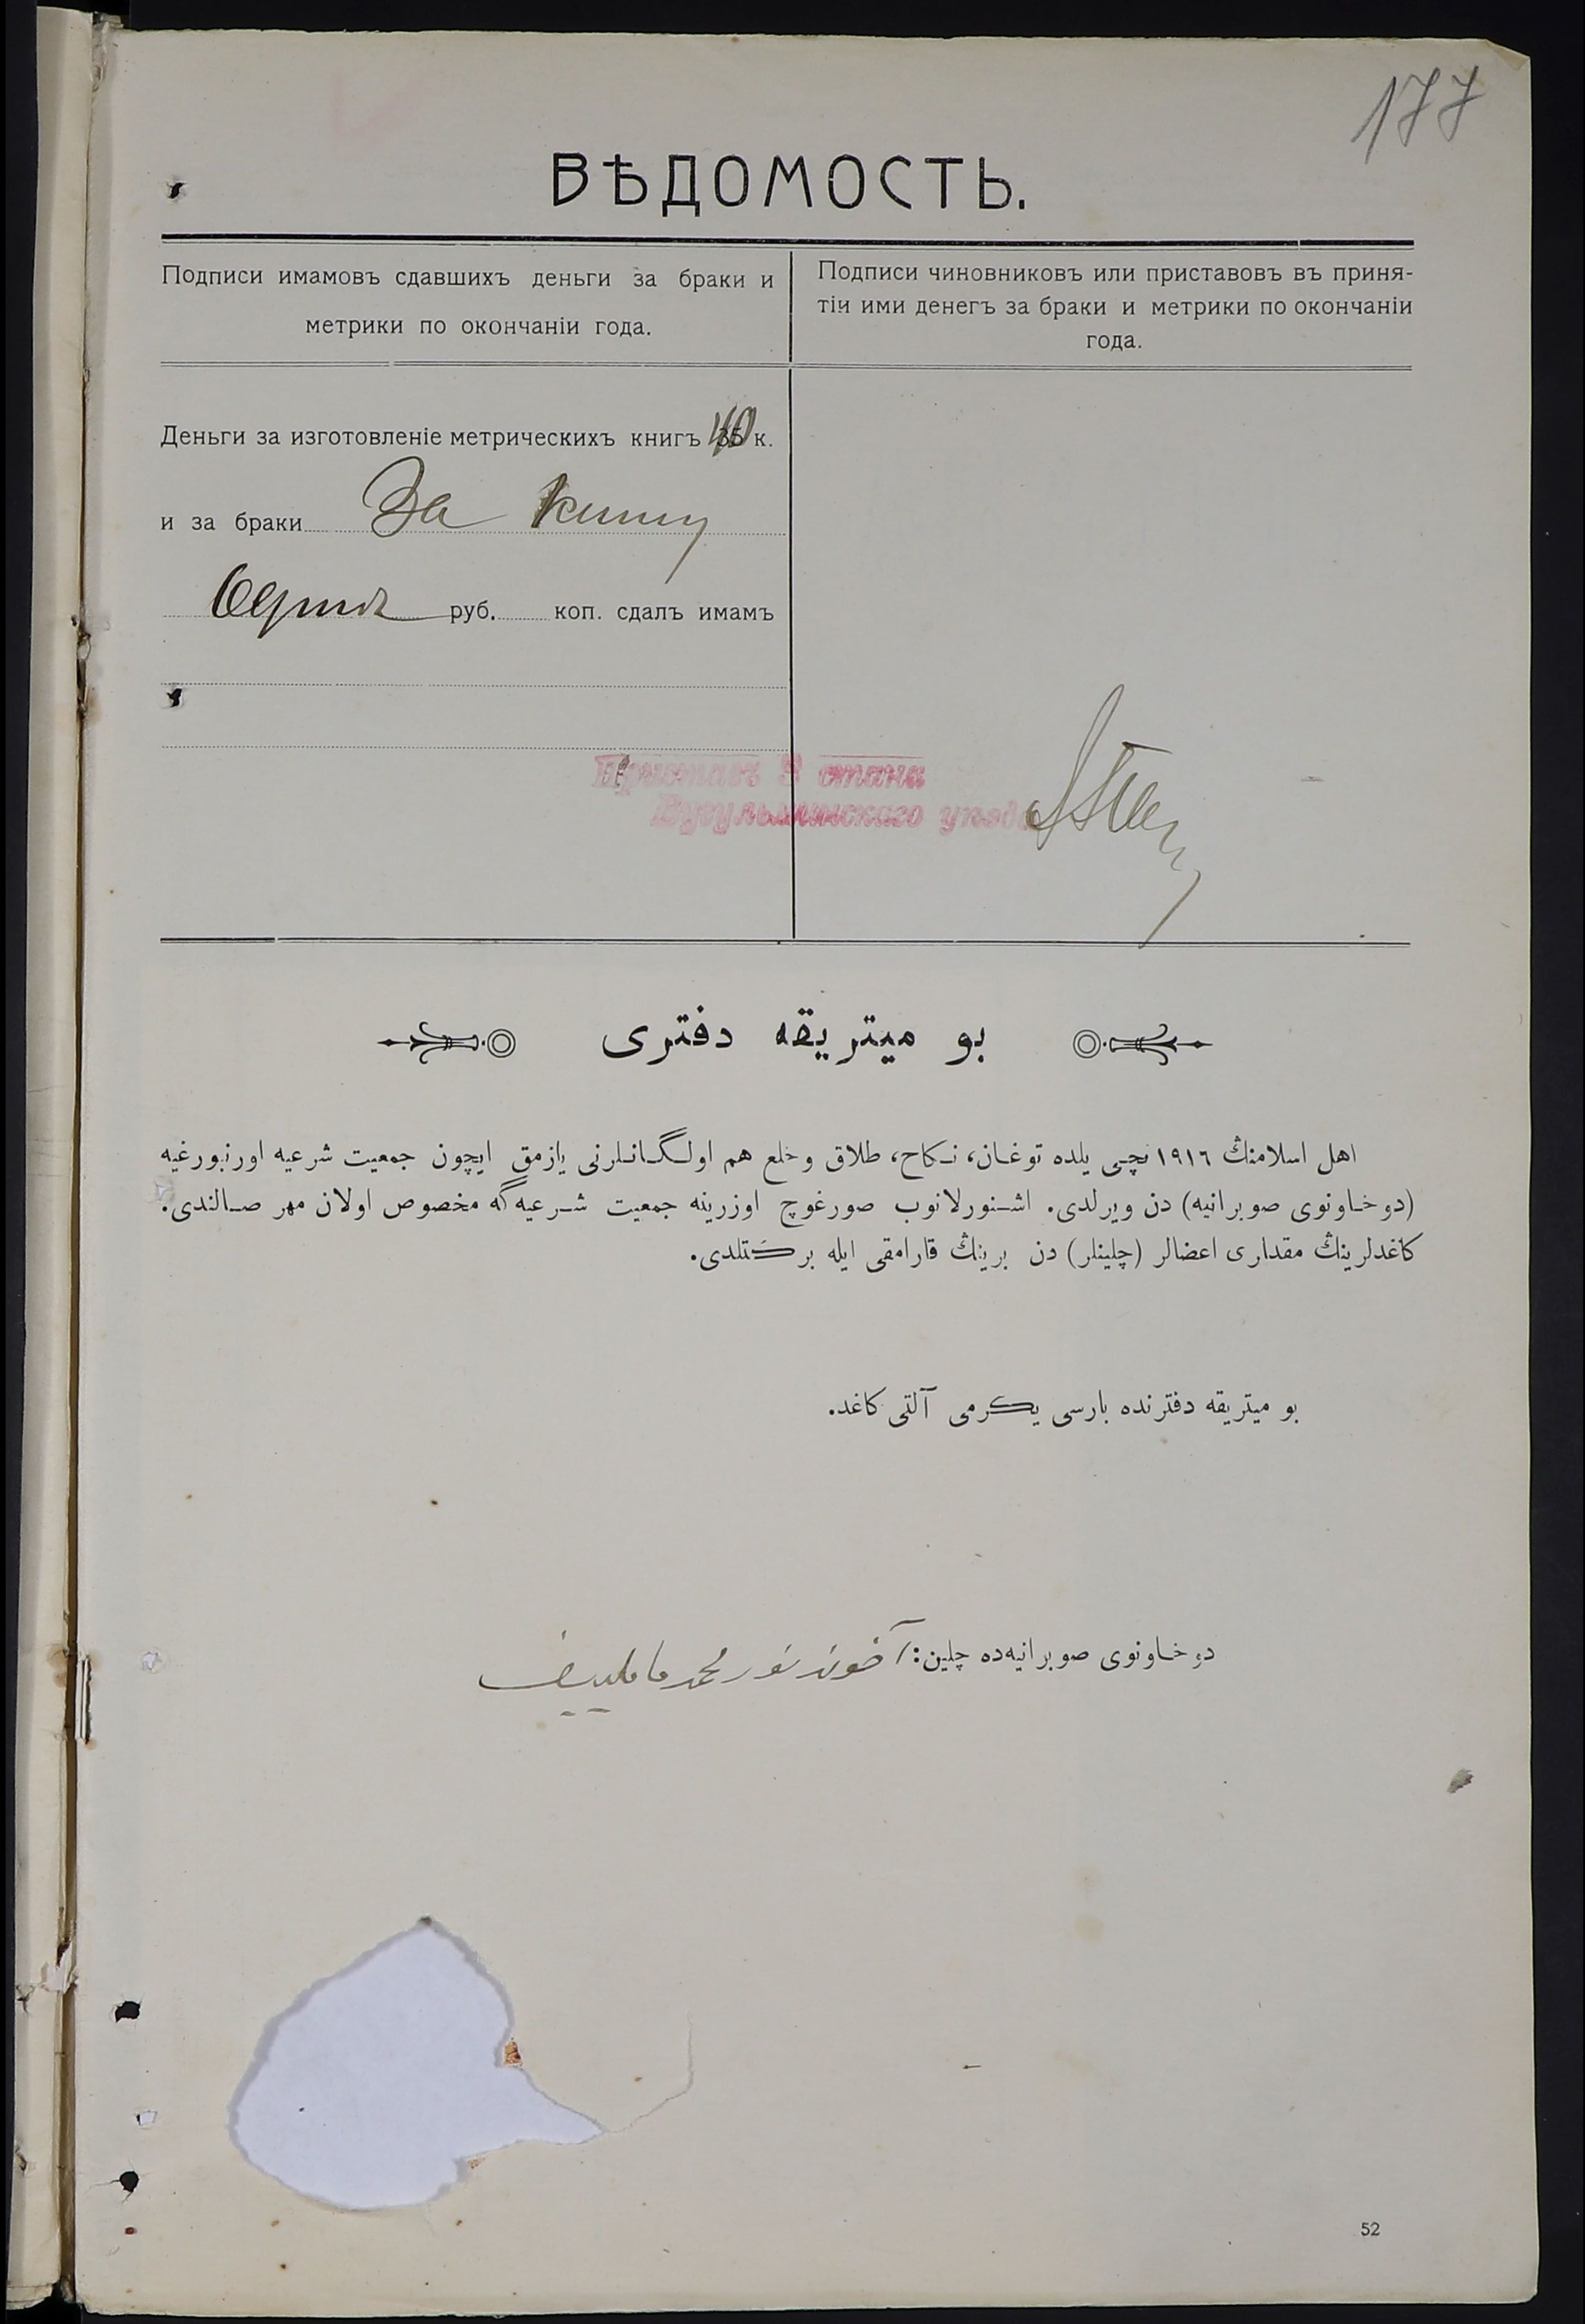 177
ВѢДОМОСТЬ.
Подписи имамовъ сдавшихъ деньги за браки и
метрики по окончаніи года.
Подписи чиновниковъ или приставовъ въ приня-
тіи ими денегъ за браки и метрики по окончаніи
года.
Деньги за изготовленіе метрическихъ книгъ 40 к.
и за браки За книгу
руб. коп. сдалъ имамъ
Приставъ 3 стана
Бугульминскаго уѣзда
بو ميتريقه دفترى
اهل اسلامنڭ ١٩١٦ نچى يلده توغان، نكاح، طلاق وخلع هم اولگانلرنى يازمق ايچون جمعيت شرعيه اورنبورغيه
(دوخاونوى صوبرانيه) دن ويرلدى. اشنورلانوب صورغوچ اوزرينه جمعيت شرعيه گه مخصوص اولان مهر صالندى.
كاغدلرينڭ مقدارى اعضالر (چلينلر) دن برينڭ قارامقى ايله بركتلدى.
بو ميتريقه دفترنده بارسى يكرمى آلتى كاغد.
دوخاونوى صوبرانيه‌ده چلين: آخوند نور محمد ماملييف
52